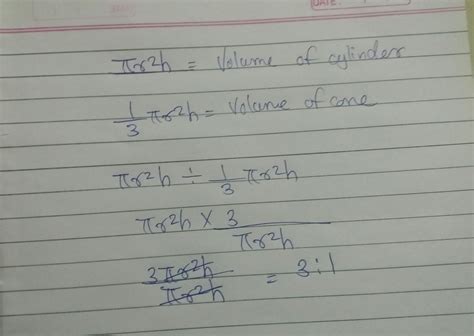 DATE:
πr²h = Volume of cylinder
1/3 πr²h = Volume of cone
πr²h ÷ 1/3 πr²h
πr²h × 3/πr²h
3πr²h/πr²h = 3:1